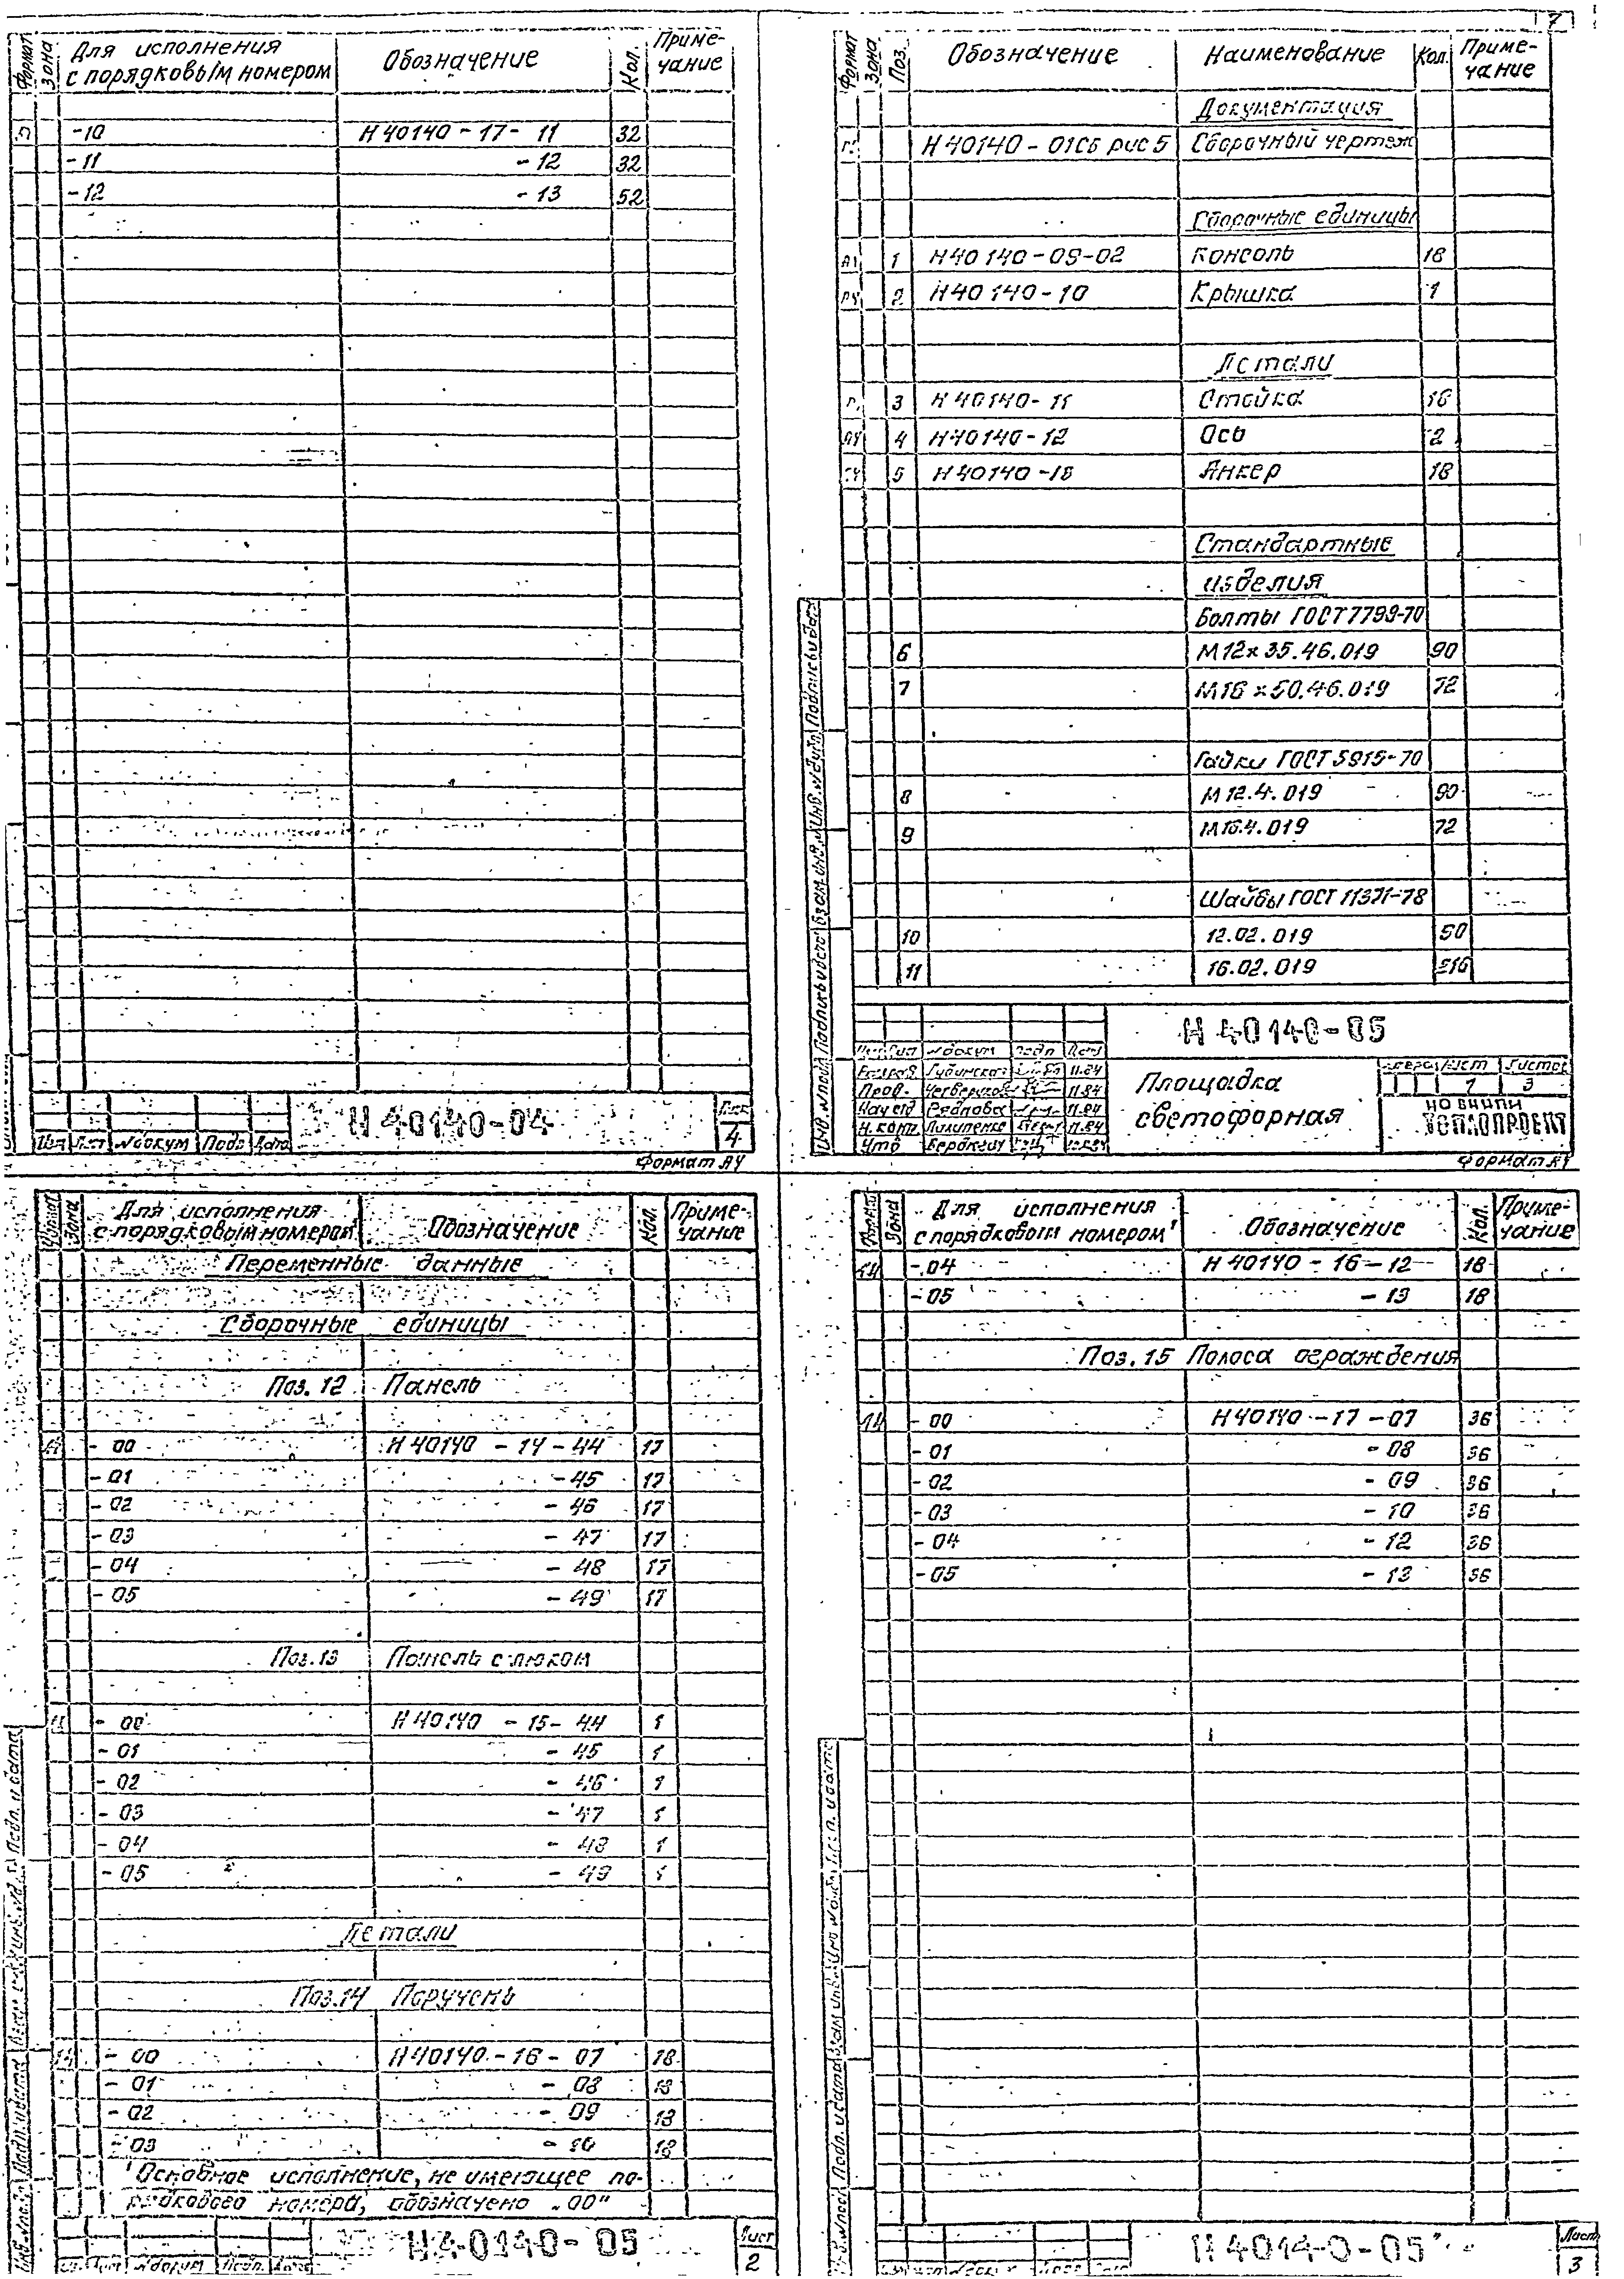 7
Формат Зона Для исполнения с порядковым номером Обозначение Кол. Приме-чание
-10 Н40140-17-11 32
-11 -12 32
-12 -13 52
Изм Лист № докум Подп Дата
Н40140-04
Лист
4
Формат А4
Формат Зона Поз. Обозначение Наименование Кол. Приме-чание
Документация
Н40140-01СБ рис5 Сборочный чертеж
Сборочные единицы
1 Н40140-09-02 Консоль 18
А4 2 Н40140-10 Крышка 1
Детали
3 Н40140-11 Стойка 16
А4 4 Н40140-12 Ось 2
5 Н40140-18 Анкер 18
Стандартные
изделия
Болты ГОСТ 7798-70
6 М12х35.46.019 90
7 М16х50.46.019 72
Гайки ГОСТ 5915-70
8 М12.4.019 90
9 М16.4.019 72
Шайбы ГОСТ 11371-78
10 12.02.019
11 16.02.019
Н40140-05
№ докум Подп Дата
Пров.
Н.конт.
Утв
Площадка
светофорная
Лист Листов
1 3
ВНИПИ
ТЕПЛОПРОЕКТ
Формат А4
Формат Зона Для исполнения с порядковым номером¹ Обозначение Кол. Приме-чание
Переменные данные
Сборочные единицы
Поз. 12 Панель
- 00 Н40140-14-44 17
- 01 -45 17
- 02 -46 17
- 03 -47 17
- 04 -48 17
- 05 -49 17
Поз.13 Панель с люком
- 00 Н40140-15-44 1
- 01 -45 1
- 02 -46 1
- 03 -47 1
- 04 -48 1
- 05 -49 1
Детали
Поз.14 Поручень
- 00 Н40140-16-07 18
- 01 -08 18
- 02 -09 18
- 03 -10 18
¹Основное исполнение, не имеющее по-
рядкового номера, обозначено „00"
Н40140-05
Лист
2
Формат Зона Для исполнения с порядковым номером¹ Обозначение Кол. Приме-чание
-04 Н40140-16-12 18
-05 -13 18
Поз.15 Полоса ограждения
- 00 Н40140-17-07 36
- 01 -08 36
- 02 -09 36
- 03 -10 36
- 04 -12 36
- 05 -13 36
Н40140-05
Лист
3